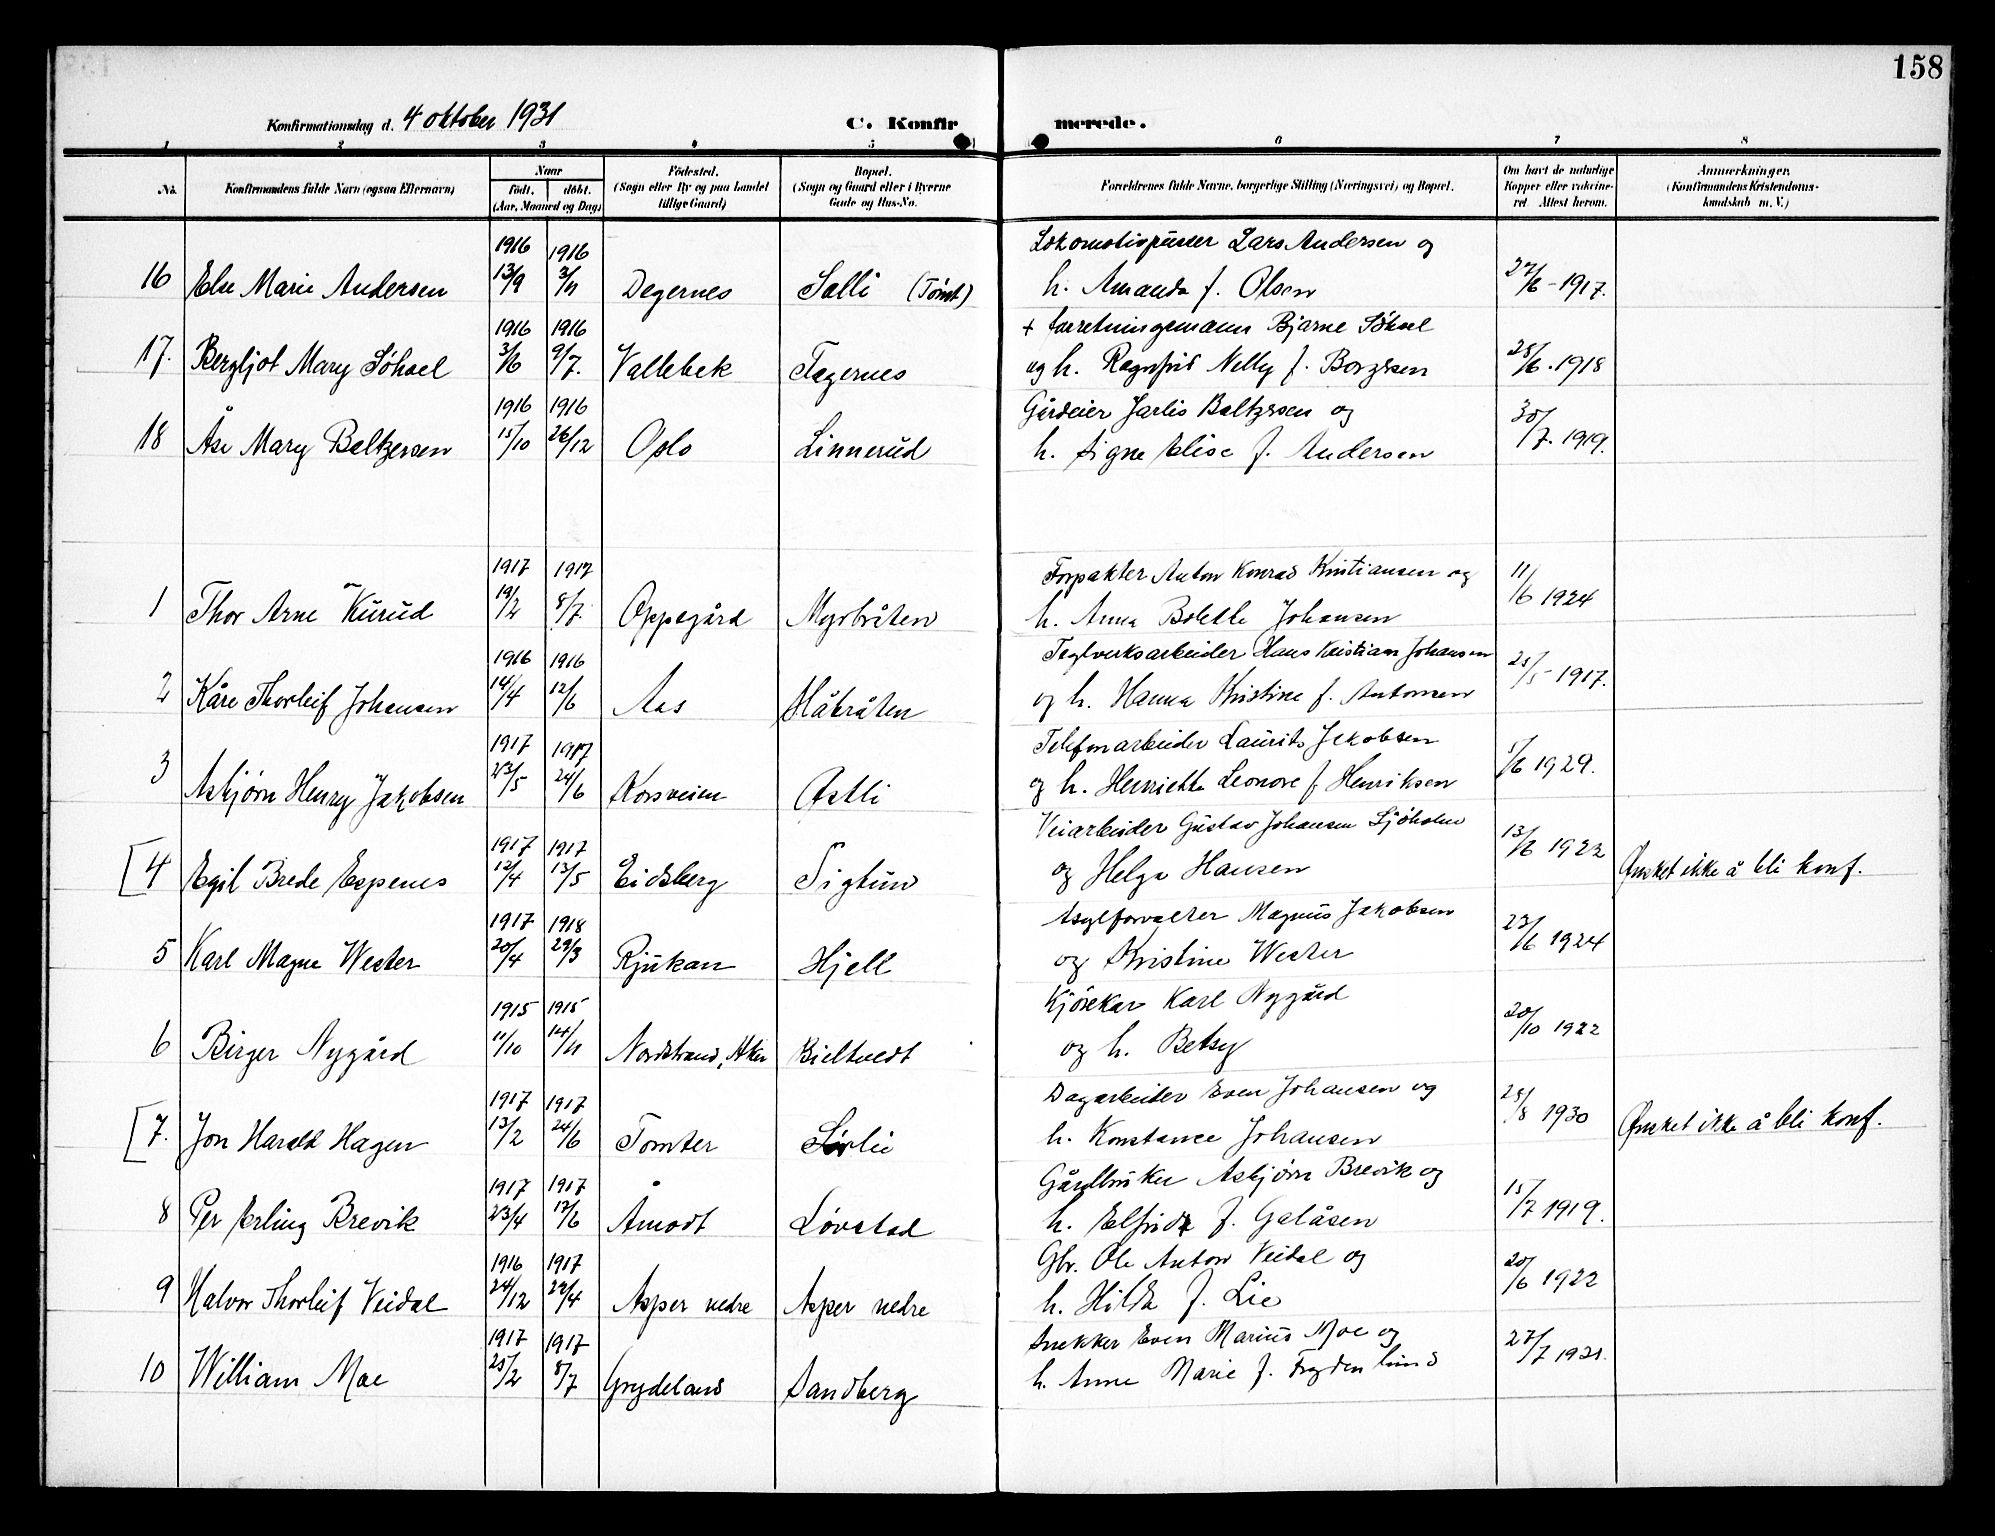 158
Konfirmationsdag d. 4 oktober 1931
C. Konfirmerede.
1 2 3 4 5 6 7 8
No. Konfirmandens fulde Navn (ogsaa Efternavn) Naar født. døbt. (Aar, Maaned og Dag) Fødested. (Sogn eller By og paa Landet tillige Gaard) Bopæl. (Sogn og Gaard eller i Byerne Gade og Hus-No. Forældrenes fulde Navne, borgerlige Stilling (Næringsvei) og Bopæl. Om havt de naturlige Kopper eller vakcineret Attest herom. Anmerkninger. (Konfirmandens Kristendomskundskab m. V.)
1916 1916 Lokomotivpusser Lars Andersen og
16 Else Marie Andersen 13/9 3/11 Degernes Salli (Tomt) h. Amanda f. Olsen 27/6-1917.
1916 1916 + forretningsmann Bjarne Sõhoel
17. Bergljot Mary Sõhoel 3/6 9/7. Vallebek Fagernes og h. Ragnfrid Nelly f. Borgersen 28/6.1918
1916 1916 Gårdeier Jarlis Baltzersen og
18 Åse Mary Baltzersen 15/10 26/12 Oslo Linnerud h. Signe Elise f. Andersen 30/7.1919.
1917 1917 Forpakter Anton Konrad Kristiansen og
1 Thor Arne Kurud 19/2 8/7. Oppegård Myrbråten h. Anna Bolette Johansen 11/6 1924
1916 1916 Teglverksarbeider Hans Kristian Johansen
2 Kåre Thorleif Johansen 14/4 12/6 Aas Håbråten og h. Hanna Kristine f. Antonsen 25/5-1917.
1917 1917 Telefonarbeider Laurits Jakobsen
3 Asbjørn Henry Jakobsen 23/5 24/6 Korsveien Østli og h. Henriette Leonore f. Henriksen 1/6 1929.
1917 1917 Veiarbeider Gustav Johansen Sjöholm
[4 Egil Brede Espenes 12/4 13/5 Eidsberg Sigtun og Helga Hansen 13/6 1922 Ønsket ikke å bli konf.
1917 1918 Asylforvalter Magnus Jakobsen
5 Karl Magne Wester 20/4 29/3 Rjukan Hjell og Kristine Wester 23/6 1924
1915 1915 Kjørekar Karl Nygård
6 Birger Nygård 11/10 14/11 Nordstrand, Aker Bieltvedt og h. Betsy 20/10 1922
1917 1917 Dagarbeider Even Johansen og
[7. Jon Harald Hagen 13/2 24/6 Tomter Sørlie h. Konstance Johansen 28/8 1930 Ønsket ikke å bli konf.
1917 1917 Gårdbruker Asbjørn Brevik og
8 Per Erling Brevik 23/4 17/6 Åmodt Løvstad h. Elfrida f. Galåsen 15/7 1919.
1916 1917 Gbr. Ole Anton Veidal og
9 Halvor Thorleif Veidal 24/12 29/4 Asper nedre Asper nedre h. Hilda f. Lie 20/6 1922
1917 1917 Snekker Even Marius Moe og
10 William Moe 25/2 8/7 Grydeland Sandberg h. Anne Marie f. Frydenlund 27/7 1921.